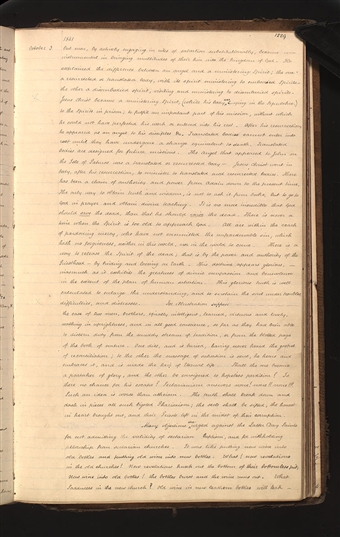 1841
1229
October 3
but men, by actively engaging in rites of salvation substitutionally, became
instrumental in bringing multitudes of their kin into the Kingdom of God. He
explained the difference between an angel and a ministering spirit; the one
a resurrected or translated body, with its spirit ministering to embodied spirits;
the other a disembodied spirit, visiting and ministering to disembodied spirits.
Jesus Christ became a ministering spirit, (while his body was laying in the sepulchre)
to the spirits in prison; to fulfill an important part of his mission, without which
he could not have perfected his work or entered into his rest. After his resurrection
he appeared as an angel to his disciples &c. Translated bodies cannot enter into
rest until they have undergone a change equivalent to death. Translated
bodies are designed for future missions. The angel that appeared to John on
the Isle of Patmos was a translated or resurrected body. Jesus Christ went in
body, after his resurrection, to minister to translated and resurrected bodies. There
has been a chain of authority and power from Adam down to the present time.
The only way to obtain truth and wisdom, is not to ask it from books, but to go to
God in prayer and obtain divine teaching. It is no more incredible that God
should save the dead, than that he should raise the dead. There is never a
time when the spirit is too old to approach God. All are within the reach
of pardoning mercy, who have not committed the unpardonable sin, which
hath no forgiveness, neither in this world, nor in the world to come. There is a
way to release the spirit of the dead; that is by the power and authority of the
Priesthood — by binding and loosing on earth. This doctrine appears glorious,
inasmuch as it exhibits the greatness of divine compassion and benevolence
in the extent of the plan of human salvation. This glorious truth is well
calculated to enlarge the understanding, and to sustain the soul under troubles
difficulties, and distresses. For illustration suppose
the case of two men, brothers, equally intelligent, learned, virtuous and lovely,
walking in uprightness and in all good conscience, so far as they had been able
to discern duty from the muddy stream of tradition, or from the blotted page
of the book of nature. One dies, and is buried, having never heard the gospel
of reconciliation; to the other the message of salvation is sent, he hears and
embraces it, and is made the heir of eternal life. Shall the one become
a partaker of glory, and the other be consigned to hopeless perdition? Is
there no chance for his escape? Sectarianism answers none! none!! none!!!
Such an idea is worse than atheism. The truth shall break down and
dash in pieces all such bigoted Pharisaism; the sects shall be sifted, the honest
in heart brought out, and their priests left in the midst of their corruption.
Many objections are urged against the Latter Day Saints
for not admitting the validity of sectarian baptism, and for withholding
fellowship from sectarian churches. It was like putting new wine into
old bottles and putting old wine into new bottles. What! new revelations
in the old churches! New revelations knock out the bottom of their bottomless pit.
New wine into old bottles! the bottles burst and the wine runs out. What
Sadducees in the new church! Old wine in new leathern bottles will leak